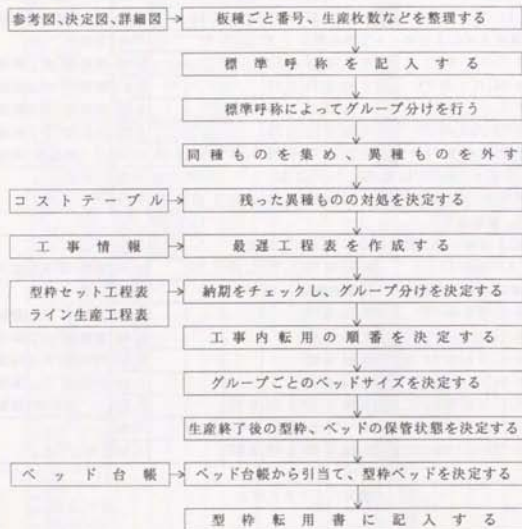 参考図、決定図、詳細図
板種ごと番号、生産枚数などを整理する
標準呼称を記入する
標準呼称によってグループ分けを行う
同種ものを集め、異種ものを外す
コストテーブル
残った異種ものの対処を決定する
工事情報
最遅工程表を作成する
型枠セット工程表
ライン生産工程表
納期をチェックし、グループ分けを決定する
工事内転用の順番を決定する
グループごとのベッドサイズを決定する
生産終了後の型枠、ベッドの保管状態を決定する
ベッド台帳
ベッド台帳から引当て、型枠ベッドを決定する
型枠転用書に記入する